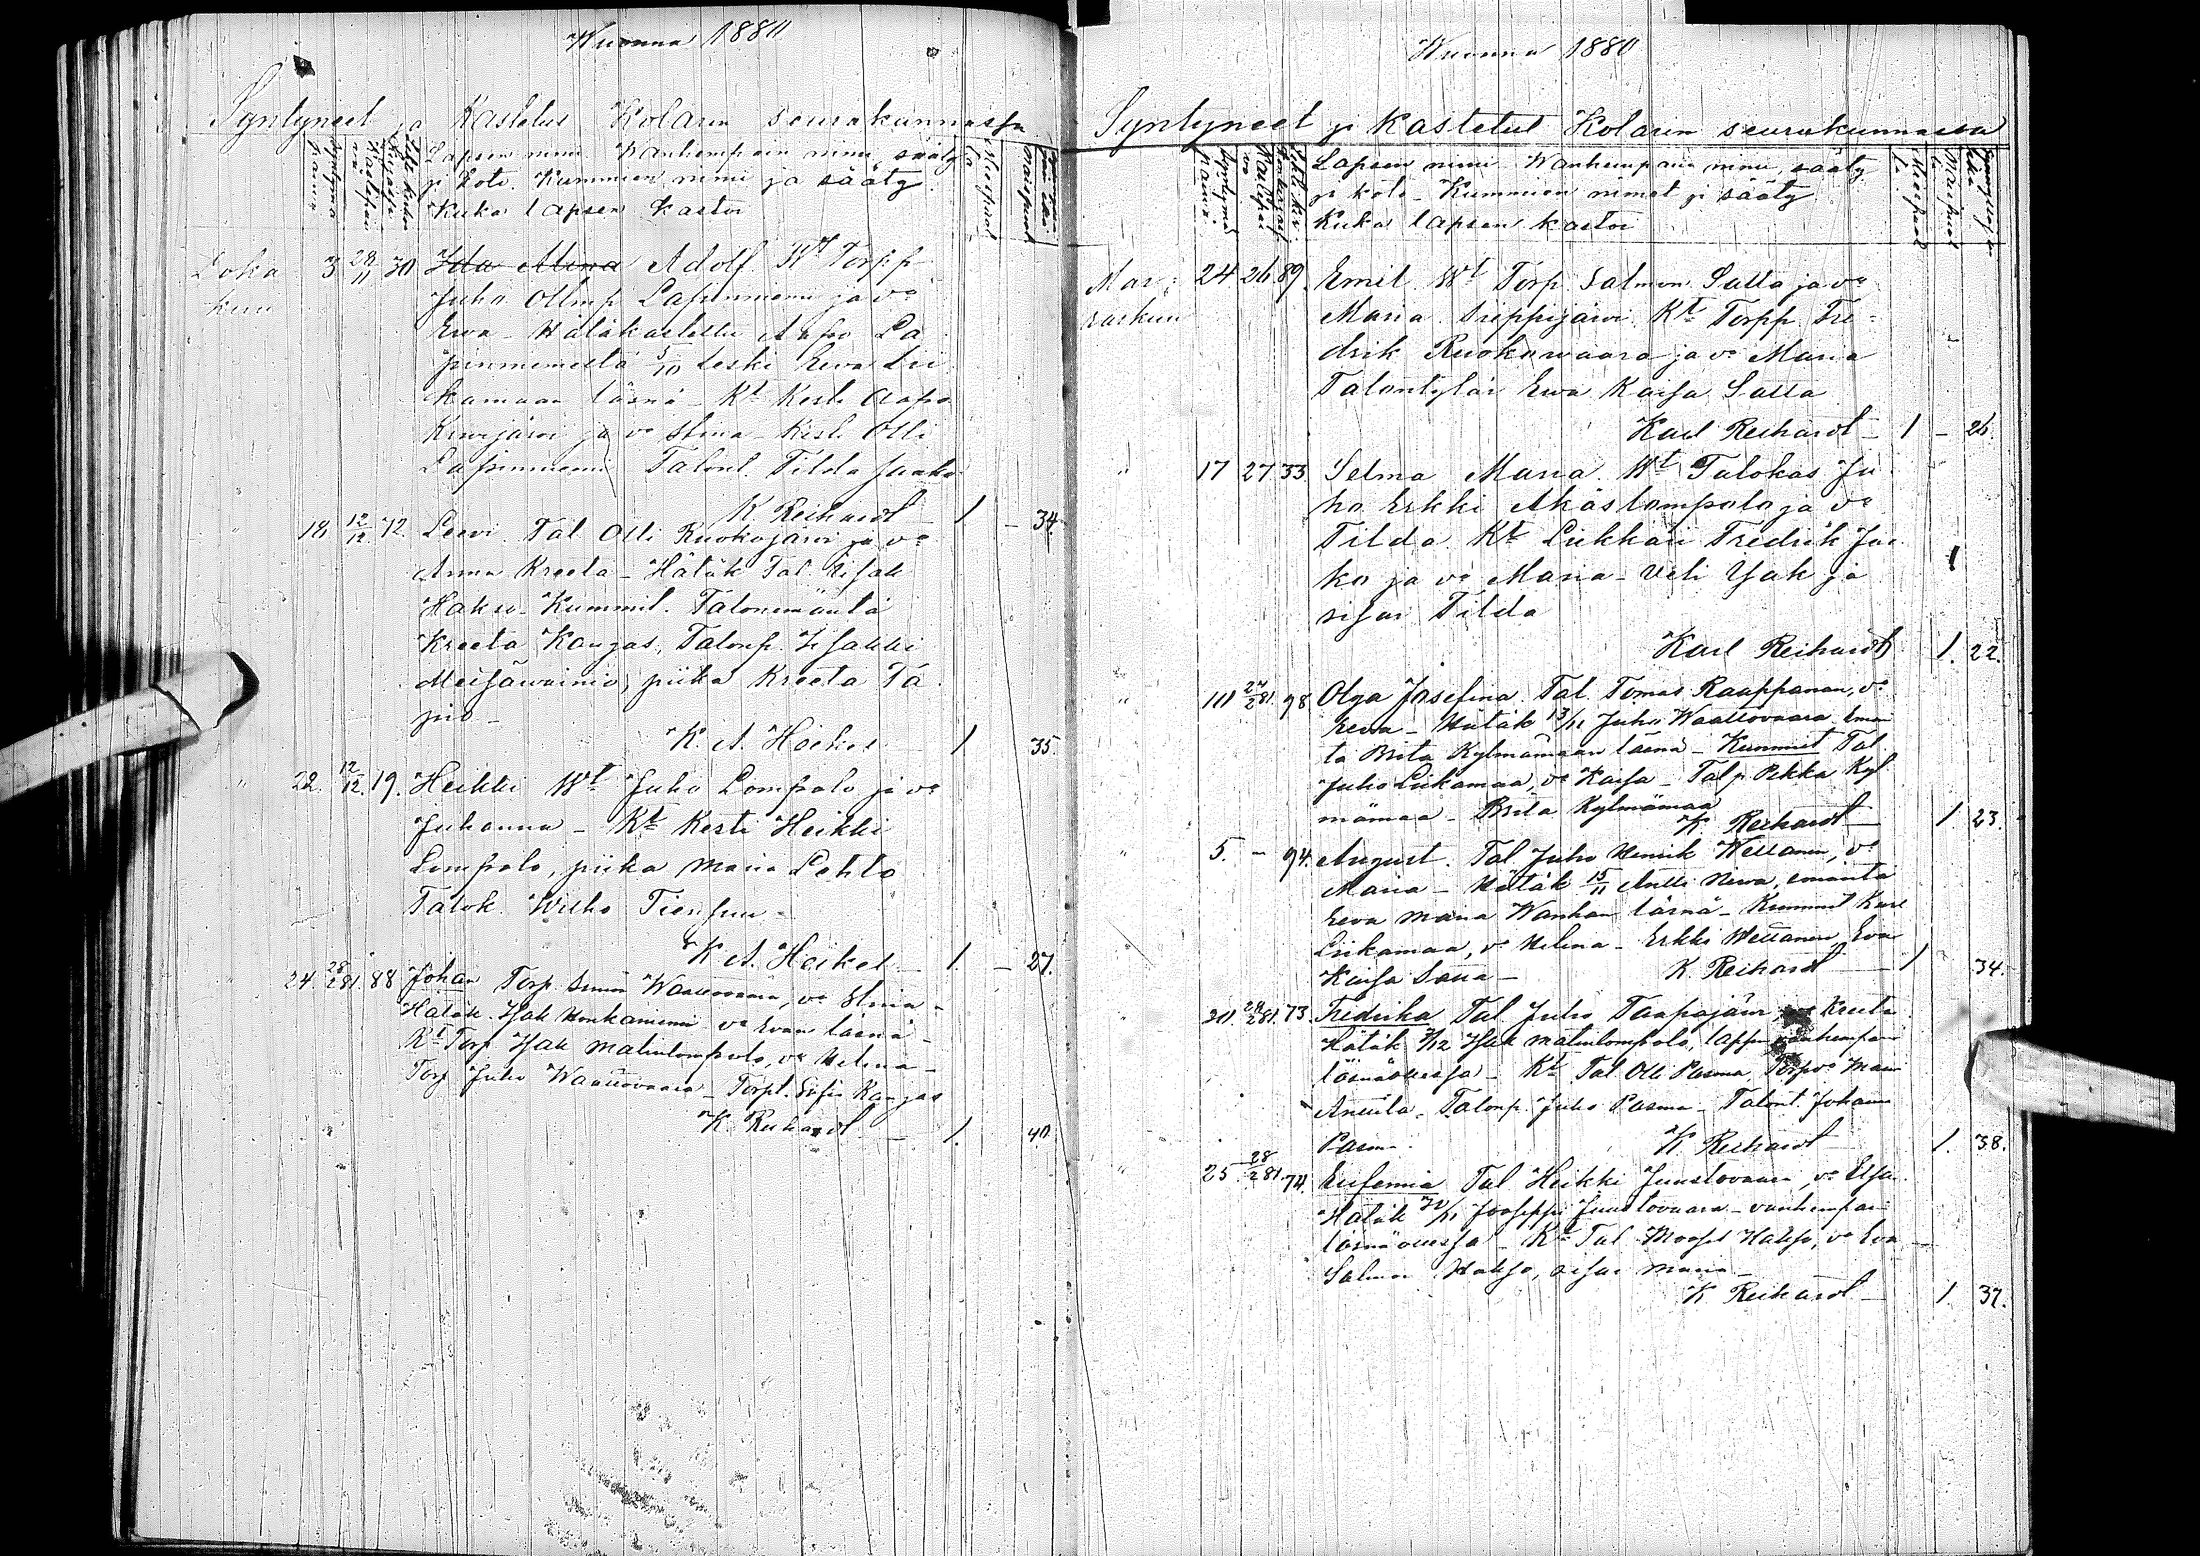 Wuonna 1880
Syntyneet ja Kastetut Kolarin seurakunnassa
Lapsen nimi Wanhempain nimi, sääty
ja koto. Kummien nimi ja sääty
Kuka lapsen kastoi
Loka 3 28/11 30 Ida Alma Adolf Wt Torpp
kuu Juho Ollinp Lapinniemi ja vo
Ewa - Hätäkastettu Aapo La
pinniemeltä 5/10 Leski Ewa Lii
kamaan läsnä - Kt Kesti Aapo
Kurijärvi ja vo Stina - Kesti Olli
Lapinniemi Talont. Tilda Jaako
K Reichardt 1 - 34.
" 18 12/12 72. Leevi. Tal Olli Ruokojärvi ja vo
Anna Kreeta - Hätäk Tal
Haku - Kummit. Talonemäntä
Kreeta Kangas, Talonp. Isakki
piika Kreeta Ta
pio -
K. A. Heikel 1 35.
" 22. 12/12. 19. Heikki Wt Juho Lompolo ja vo
Johanna - Kt Kesti Heikki
Lompolo, piika Maria Lehto
Talok. Wilho Tiensuu -
K A. Heikel 1. - 27.
24. 28/2 81. 88 Johan Torp Simon Waattovaara, vo Stina -
Hätäk. Isak Honkaniemi vo Evan läsnä -
Kt Torp Isak Matinlompolo, vo Helena -
Torp Juho Waattovaara - Torpt. Sofia Kangas
K Reichardt - 1. 40.
Wuonna 1880
Syntyneet ja Kastetut Kolarin seurakunnassa
Lapsen nimi Wanhempain nimi, sääty
ja koto - Kummien nimet ja sääty
Kuka lapsen kastoi
Mar 24 26 89. Emil Wt Torp Salmon Salla ja vo
raskuu Maria Sieppijärvi. Kt Torpp Fre
drik Ruokowaara ja vo Maria
Talontytär Ewa Kaisa Salla
Karl Reichardt - 1 - 26.
" 17 27 33. Selma Maria. Wt Talokas Ju
ho Erkki Äkäslompolo ja vo
Tilda. Kt Liekkäri Fredrik Jaa
ko ja vo Maria - Veli Isak ja 1
sisar Tilda
Karl Reichardt 1. 22.
" 10 24/2 81. 98. Olga Josefina. Tal Tomas Raappanan, vo
Eeva - Hätäk 13/11 Juho Waattovaara Emän
tä Brita Kylmämaan läsnä - Kummit Tal
Juho Liikamaa, vo Kaisa - Talp. Pekka Kyl
mämaa - Brita Kylmämaa
K. Reichardt 1 23.
" 5. - 94. August. Tal Juho Henrik Wettanen, vo
Maria - Hätäk 15/11 Antti Niwa, emäntä
Eeva Maria Wanhan läsnä - Kummit Karl
Liikamaa, vo Helena - Erkki Wettanen Eva
Kaisa Salla - K. Reichardt - 1 34.
20. 24/2 81. 73. Fredrika Tal Juho Taapajärvi vo Kreeta
Hätäk 7/12 Isak Matinlompolo, lapsen vanhempain
läsnäollessa - Kt Tal Olli Pasma, Torp vo Maria
Anttila. Talonp. Juho Pasma - Talont. Johanna
Pasma. K. Reichardt 1. 38.
" 25 28/2 81. 74. Eufemia Tal Heikki Juustovaara, vo Elsa
Hätäk Jooseppi Juustovaara - vanhempain
läsnäollessa - Kt Tal Mooses Haksa, vo Eva
Salmon Haksa, sisar Maria -
K Reichardt - 1. 37.